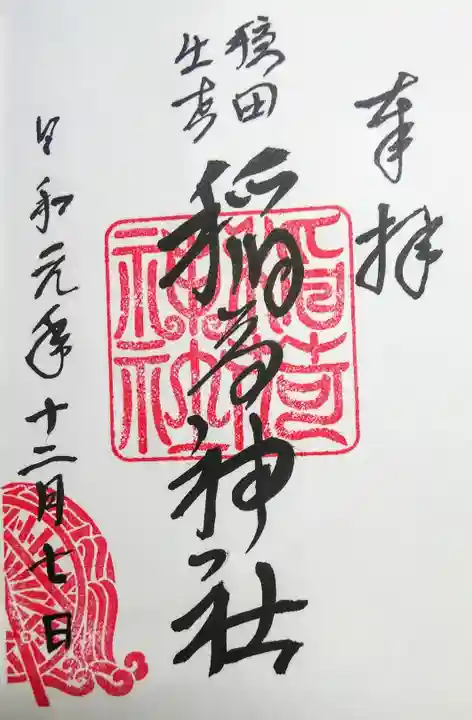 奉拝
稲荷神社
令和元年十二月七日
稲荷神社